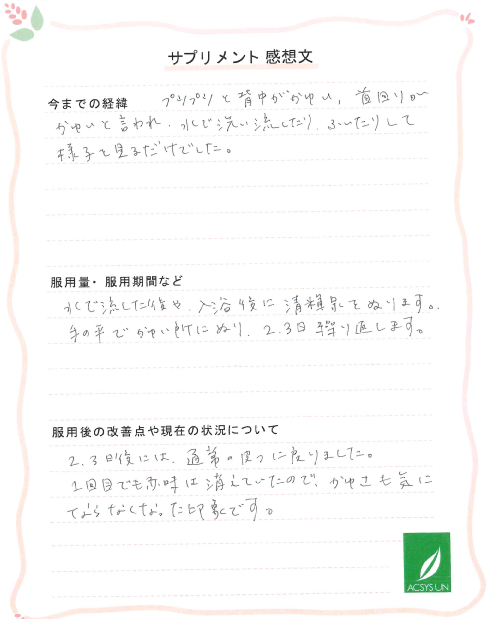 サプリメント 感想文
今までの経緯 プツプツと背中がかゆい, 首回りが
かゆいと言われ、水で洗い流したり、ふいたりして
様子を見るだけでした。
服用量・服用期間など
水で流した後や、入浴後に清精泉をぬります。
手の平でかゆい所にぬり、2.3日繰り返します。
服用後の改善点や現在の状況について
2.3日後には、通常の皮フに戻りました。
1回目でも赤味は消えていたので、かゆさも気に
ならなくなった印象です。
ACSYS UN